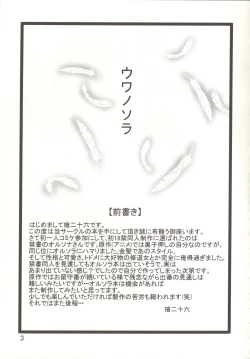 ウワノソラ
【前書き】
はじめまして槍二十六です。
この度は当サークルの本を手にして頂き誠に有難う御座います。
さて初一人コミケ参加にして、初18禁同人制作に選ばれたのは
禁書のオルソナさんです。原作(アニメ)では黒子押しの自分なのですが、
同じ位にオルソラにハマりました。金髪であのスタイル。
そして性格と可愛さ、トドメに大好物の修道女とか完全に俺得過ぎました。
禁書同人を見渡してもオルソラ本は出ていそうで、実は
あまり出ていない感じ?でしたので自分で作ってしまった次第です。
原作ではお留守番が続いている様で残念ながら出番の薄い彼女には
難しいみたいですが―オルソラ本は機会があれば
また制作してみたいと思ってます。
少しでも楽しんでいただければ製作の苦労も報われます(笑)
それではまた後程~
槍二十六
3